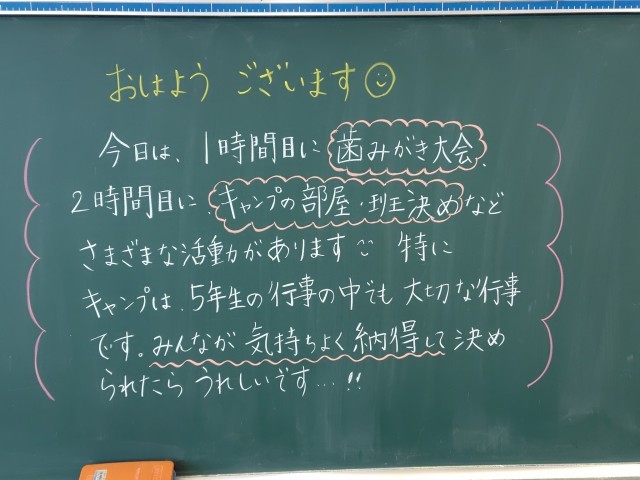 おはよう ございます
今日は、1時間目に 歯みがき大会、
2時間目に、キャンプの部屋・班決めなど
さまざまな活動があります 特に
キャンプは、5年生の行事の中でも 大切な行事
です。みんなが 気持ちよく 納得して 決め
られたら うれしいです…!!